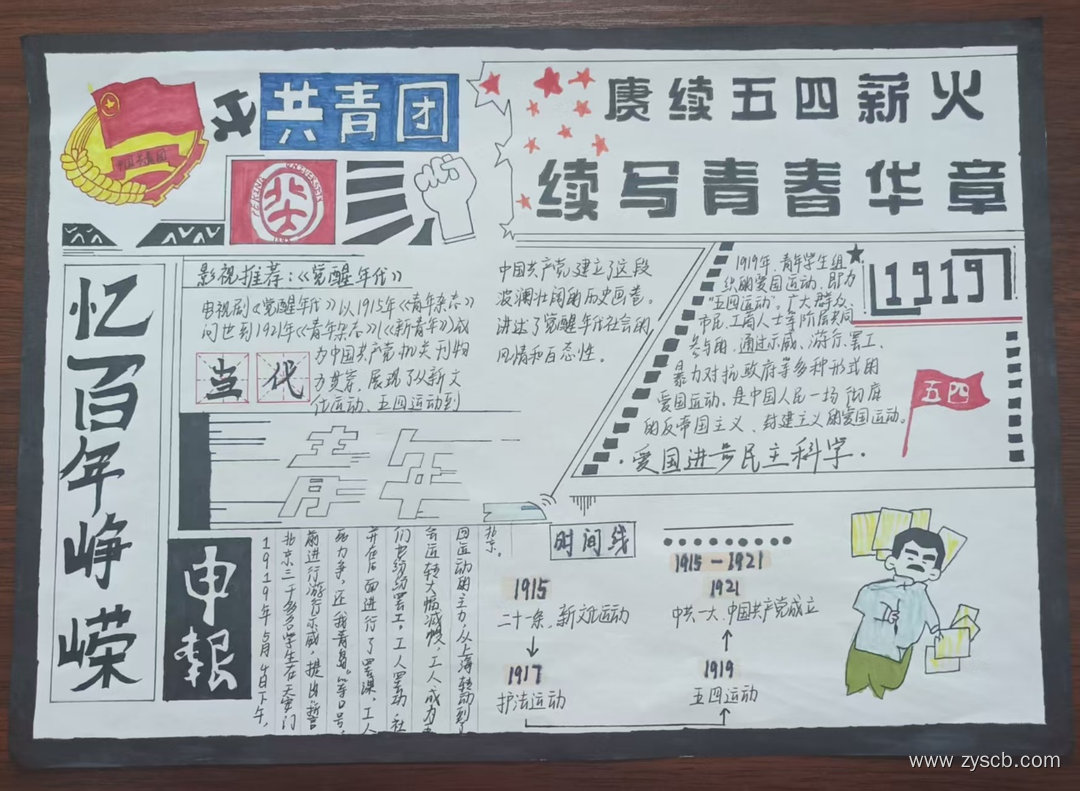 共青团
中国共青团
北大
1898
赓续五四薪火
续写青春华章
忆百年峥嵘
影视推荐:《觉醒年代》
电视剧《觉醒年代》以1915年《青年杂志》
问世到1921年《青年杂志》(《新青年》)成
为中国共产党机关刊物
为贯穿,展现了从新文
化运动、五四运动到
中国共产党建立了这段
波澜壮阔的历史画卷。
讲述了觉醒年代社会的
风情和百态性。
当代
青年
1919
1919年,青年学生组
织的爱国运动,即为
"五四运动"。广大群众、
市民、工商人士等阶层共同
参与的,通过示威、游行、罢工、
暴力对抗政府等多种形式的
爱国运动。是中国人民一场彻底
的反帝国主义、封建主义的爱国运动。
·爱国进步民主科学·
五四
申报
1919年5月4日下午,
北京三千多名学生在天安门
前进行游行示威,提出誓
死力争,还我青岛。等口号,
并在后面进行了罢课,工人
们也纷纷罢工。工人罢动,社
会运转大幅减慢,工人成为
回运动的主力,从上海转动到了
北京。
时间线
1915-1921
1915
二十一条、新文化运动
1917
护法运动
1919
五四运动
1921
中共一大、中国共产党成立
www.zyscb.com